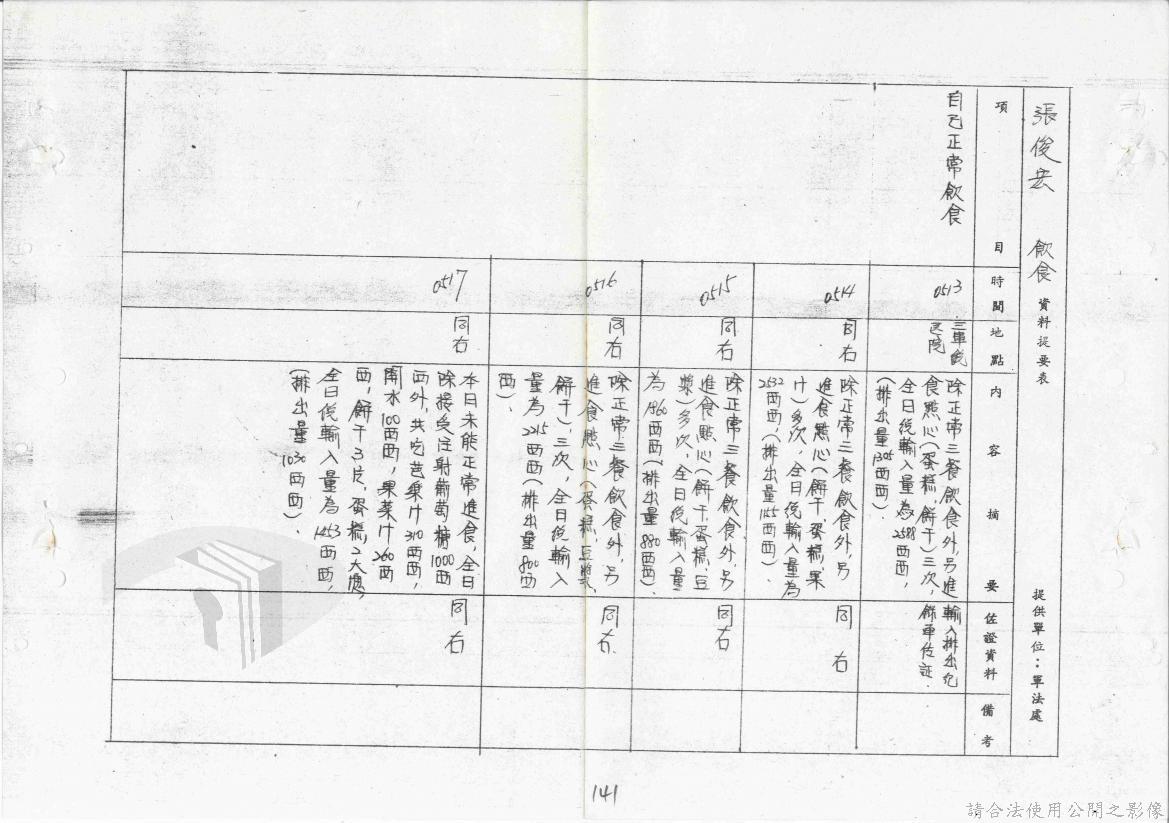 張俊宏 飲食資料提要表 提供單位：軍法處
項目
時間
地點
內容摘要
佐證資料
備考
自己正常飲食
0513
三軍總
醫院
除正常三餐飲食外,另進
食點心(蛋糕,餅干)三次,
全日總輸入量為2588西西,
(排出量1305西西).
輸入排出紀
錄單佐証.
0514
同右
除正常三餐飲食外,另
進食點心(餅干蛋糕,果
汁)多次,全日總輸入量為
2632西西,(排出量1165西西).
同右
0515
同右
除正常三餐飲食外,另
進食點心(餅干蛋糕,豆
漿)多次,全日總輸入量
為1960西西(排出量880西西).
同右
0516
同右
除正常三餐飲食外,另
進食點心(蛋糕,豆漿,
餅干),三次,全日總輸入
量為2215西西(排出量800西
西).
同右.
0517
同右
本日未能正常進食,全日
除接受注射葡萄糖1000西
西外,共吃芭樂汁310西西,
開水100西西,果菜汁260西
西,餅干3片,蛋糕,2大塊,
全日總輸入量為1453西西,
(排出量1030西西).
同右
141
請合法使用公開之影像